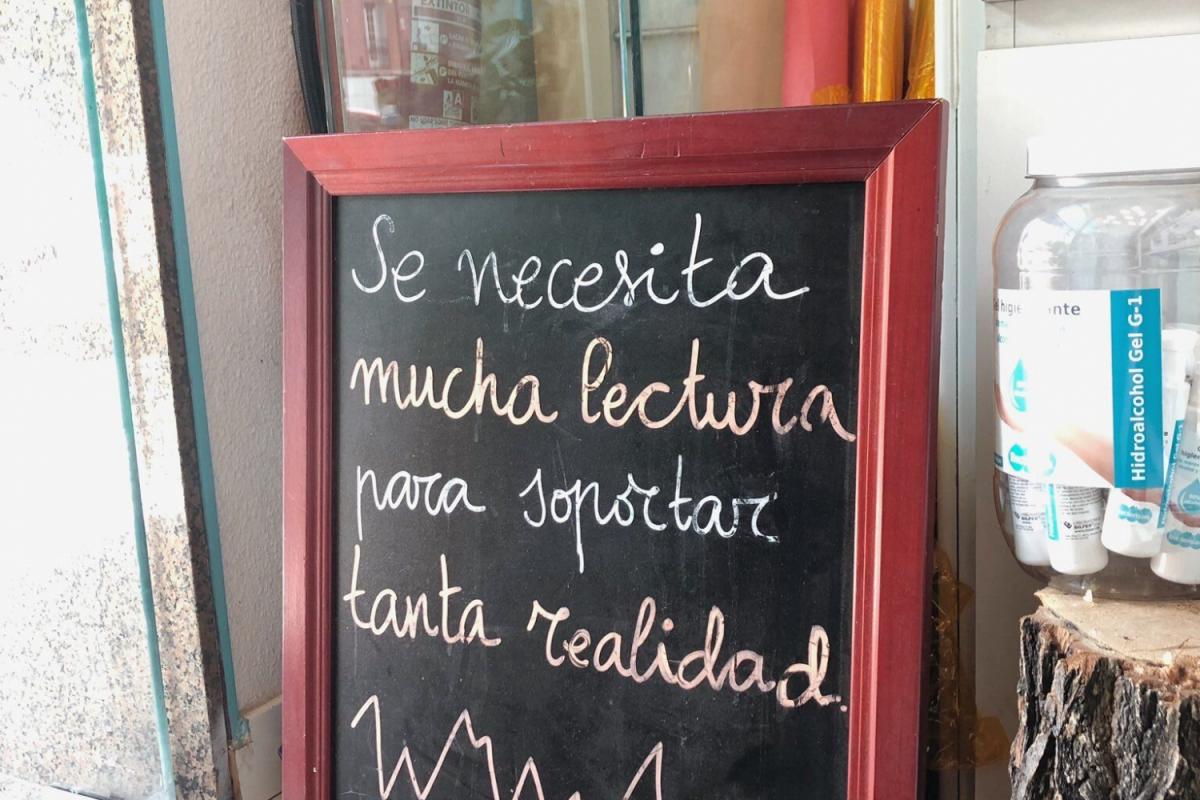 EXTINTOR
Se necesita
mucha lectura
para soportar
tanta realidad.
Hidroalcohol Gel G-1